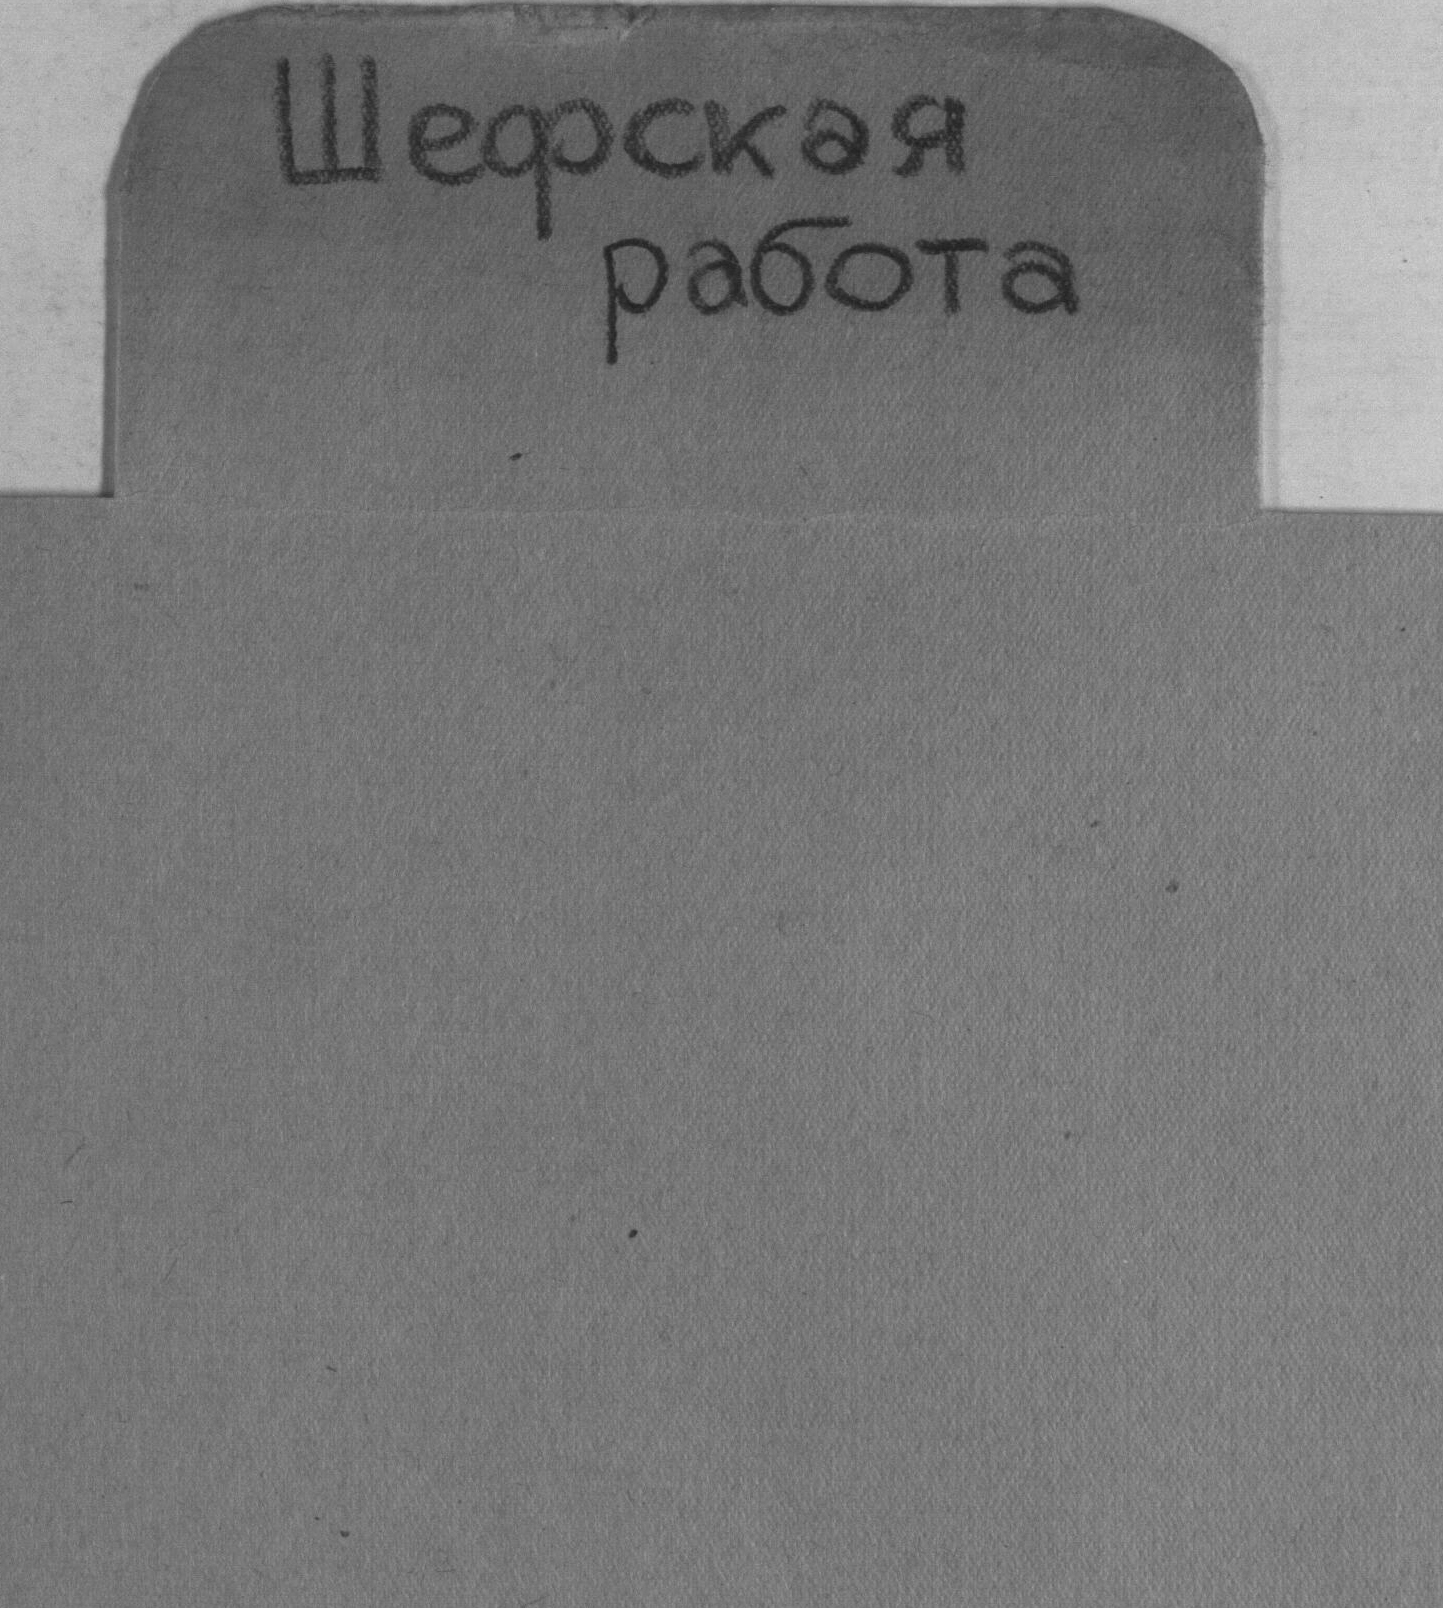 Шефская
работа